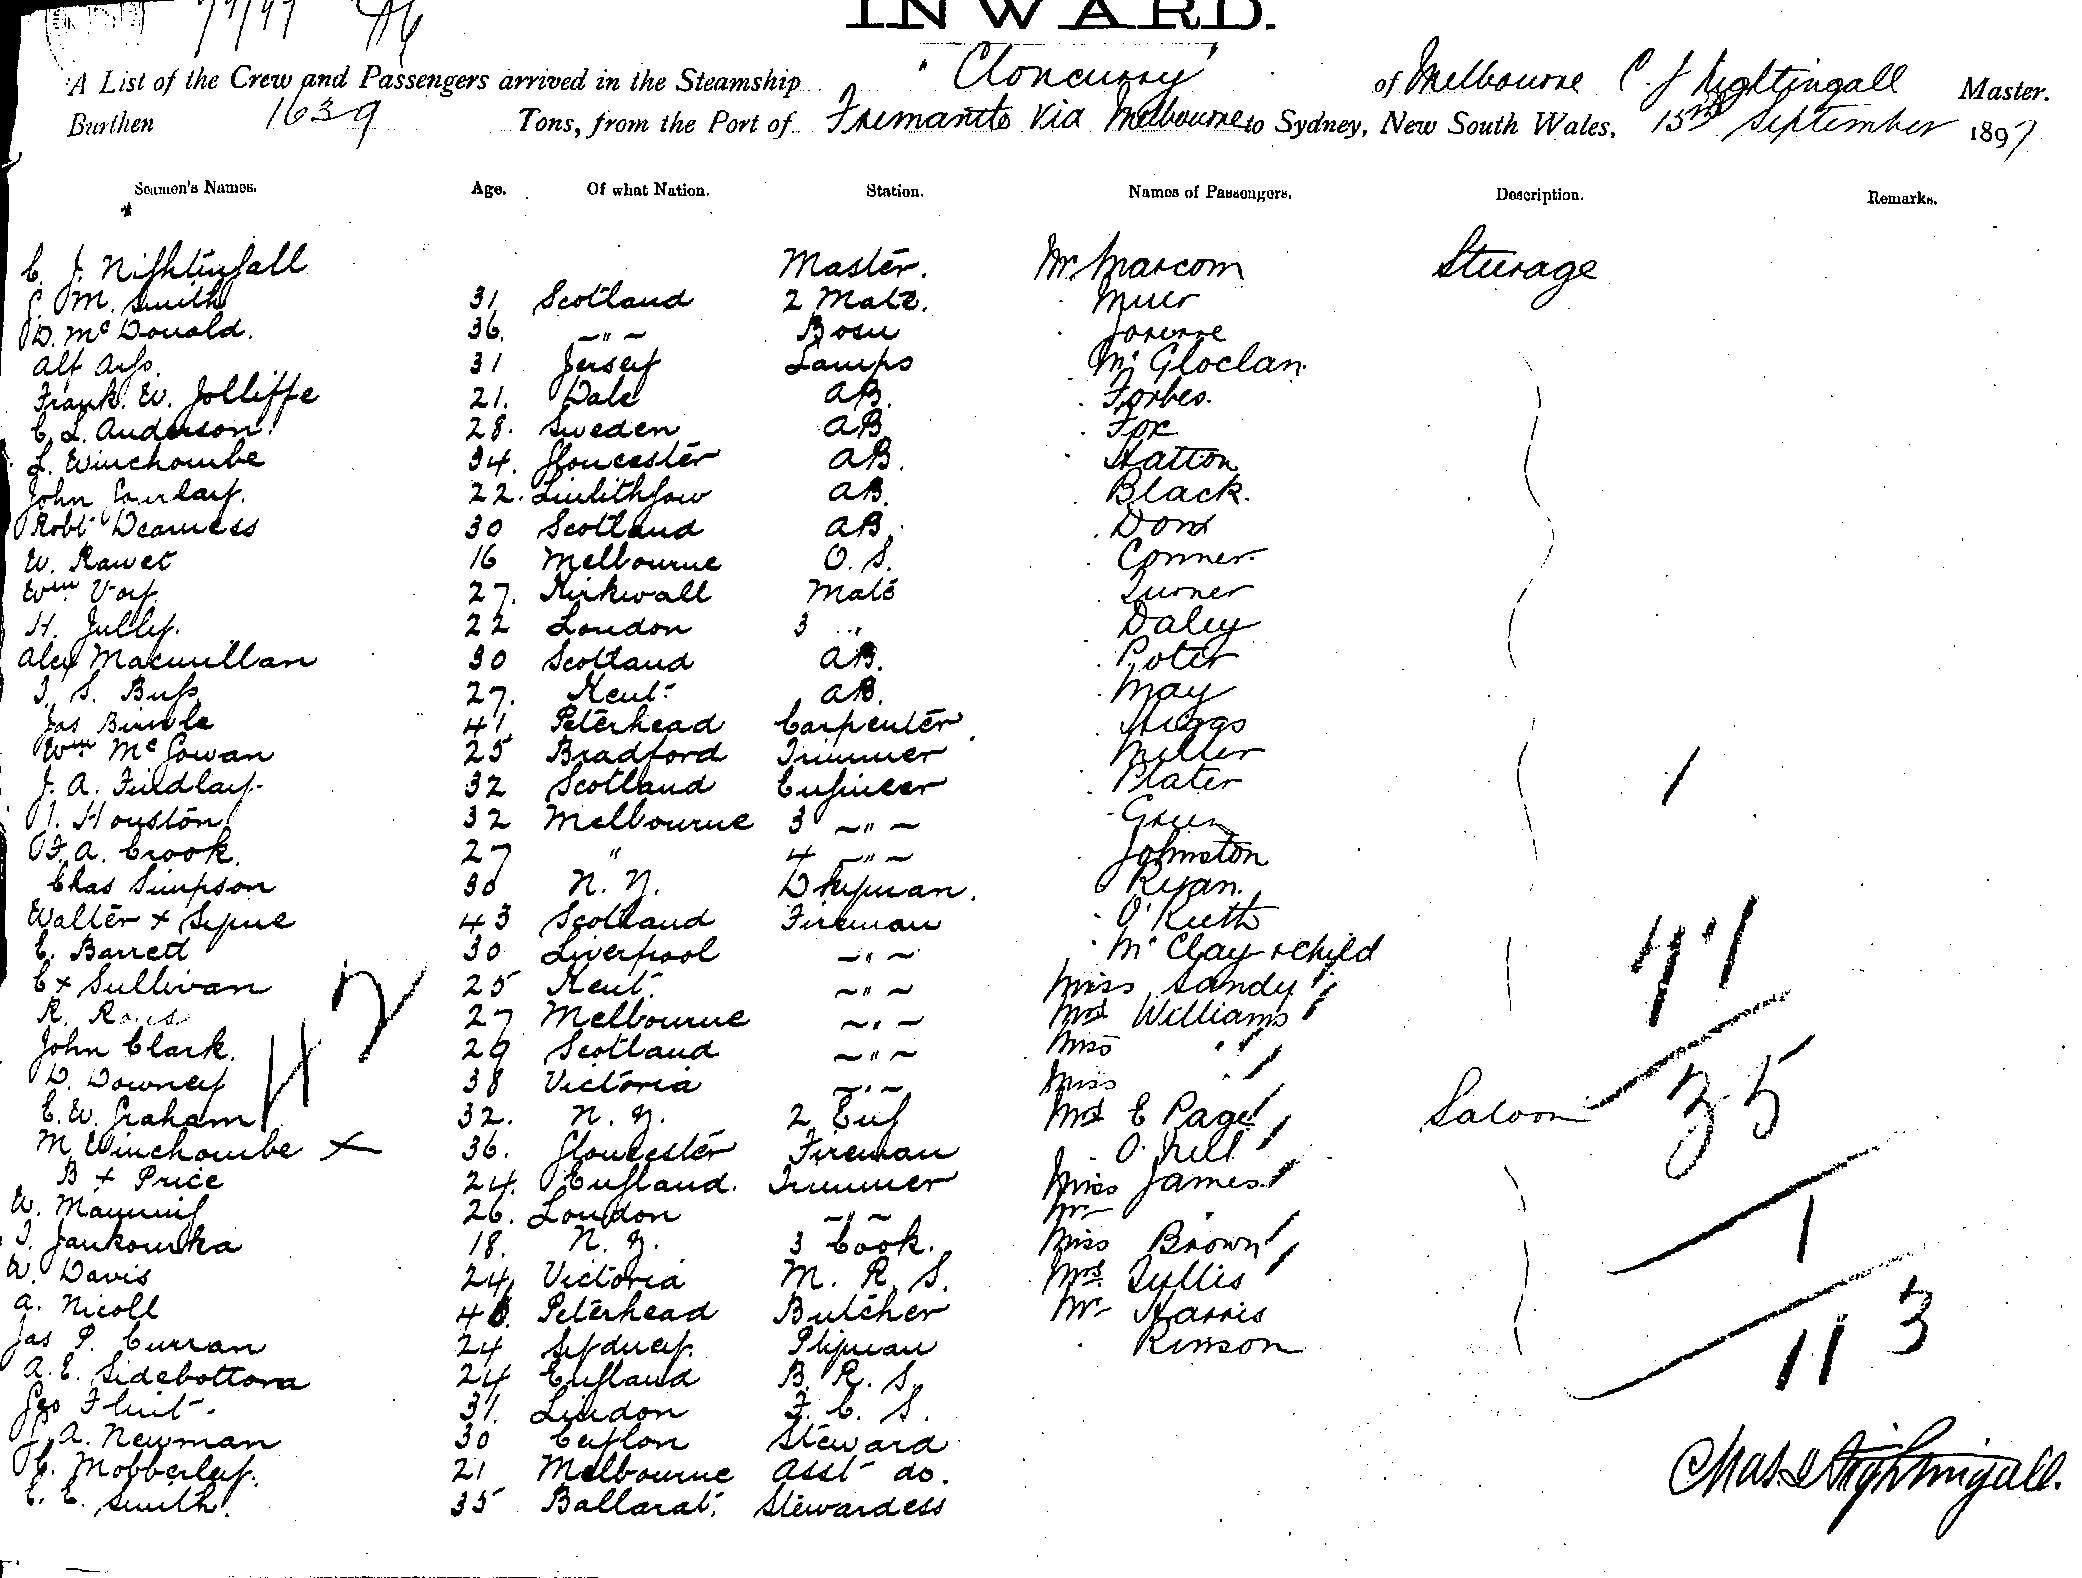 INWARD.
A List of the Crew and Passengers arrived in the Steamship "Cloncurry" of Melbourne C J Nightingall Master.
Burthen 1639 Tons, from the Port of Fremantle via Melbourne to Sydney, New South Wales, 15th September 1897
Seamen's Names. Age. Of what Nation. Station. Names of Passengers. Description. Remarks.
C. J. Nightingall Master. Mr. Marcom Sturage
M. Smith 31 Scotland 2 Mate. Muir
D. McDonald. 36 -"- Bosn
Alf 31 Jersey Lamps
Frank. W. Jolliffe 21. AB. Forbes.
C. L. Anderson 28. Sweden AB Fox
L. Winchombe 34. Gloucester AB. Hatton
John Gourlay. 22. Linlithgow AB. Black.
Robt Dearness 30 Scotland AB.
W. Rawet 16 Melbourne O. S. Conner.
Wm Voy. 27. Kirkwall Mate Turner
H. Jülley. 22 London 3 " Daley
Alex Macmillan 30 Scotland AB. Poter
S. Buss 27. Kent AB. May
Jas Birnie 41 Peterhead Carpenter Higgs
Wm McGowan 25 Bradford Trimmer Miller
J. A. Findlay. 32 Scotland Engineer Plater 1
Houston 32 Melbourne 3 -"- Green
A. Crook. 27 " 4 -"- Johnston
Chas Simpson 30 N. Z. Dkyman. Ryan.
Walter + Syme 43 Scotland Fireman O'Kieth
C. Barrett 30 Liverpool -"- Mc Clay + child 77
C + Sullivan 25 Kent. -"- Miss Sandy
R. 27 Melbourne -"- Mrs Williams
42
John Clark. 29 Scotland -"- Miss "
D. Downey 38 Victoria -"- Miss
C. W. Graham 32. N. Z. 2 Eng Mrs E Page Saloon 35
M Winchombe + 36. Gloucester Fireman O. Neil
B + Price 24. England. Trimmer Miss James
W. Manning 26. London -"- Mr " 1
Jankouska 18. N. Z. 3 Cook. Miss Brown
W. Davis 24 Victoria M. R. S. Mrs Tyllis
A. Nicoll Peterhead Butcher Mr Harris
Jas P. Curran 24 Sydney. Ptyman Rinson 113
A. E. Sidebottom 24 England B. R. S.
Geo Flint. 31. London F. C. S.
A. Newman 30 Ceylon Steward
Mobberley. 21 Melbourne Asst do.
C. E. Smith. 35 Ballarat. Stewardess
Chas J Nightingall.